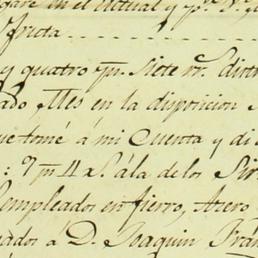 en el actual y
fricta
y quatro ps. Siete rs. distri
ado Mes en la disposicion
ue tomé á mi Cuenta y di
: 7 ps 4 rs. á la de los Sir
empleados en fierro, Azero
uados a D. Joaquin Frán